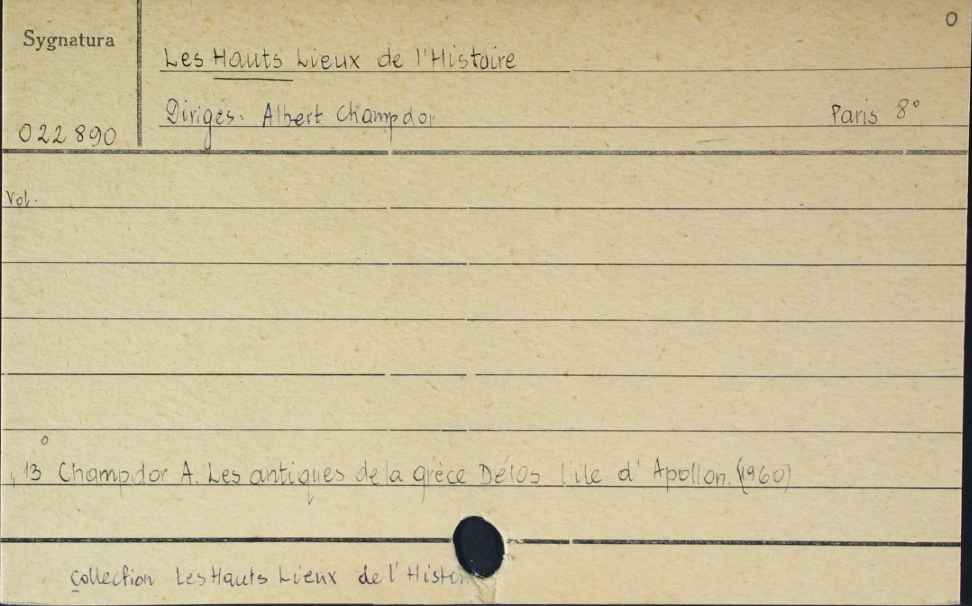 0
Sygnatura
Les Hauts Lieux de l'Histoire
Dirigés. Albert Champdor Paris 8°
022 890
Vol.
o
13 Champdor A. Les antiques de la grèce Délos l'ile d' Apollon. (1960)
Collection Les Hauts Lieux de l' Histoi